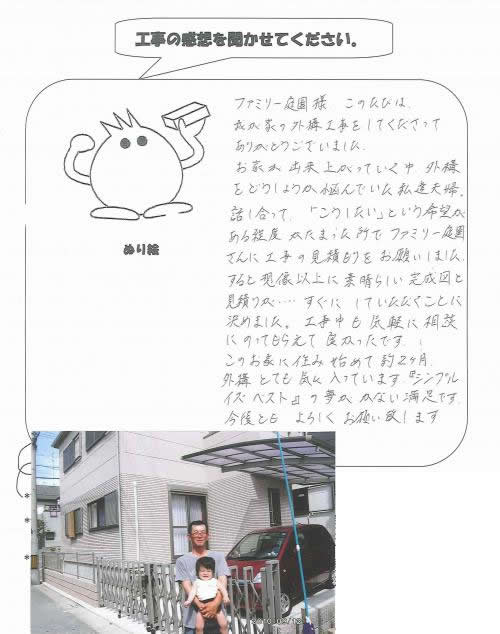 工事の感想を聞かせてください。
ファミリー庭園様 このたびは、
我が家の外構工事をしてくださって
ありがとうございました。
お家が出来上がっていく中、外構
をどうしようか悩んでいた私達夫婦。
話し合って、「こうしたい」という希望が
ある程度かたまった所でファミリー庭園
さんに工事の見積もりをお願いしました。
すると想像以上に素晴らしい完成図と
見積りが‥‥すぐにしていただくことに
決めました。工事中も気軽に相談
にのってもらえて良かったです!
このお家に住み始めて約2ヶ月。
外構とても気に入っています。『シンプル
イズベスト』の夢がかない満足です。
今後とも よろしくお願い致します
ぬり絵
*
*
*